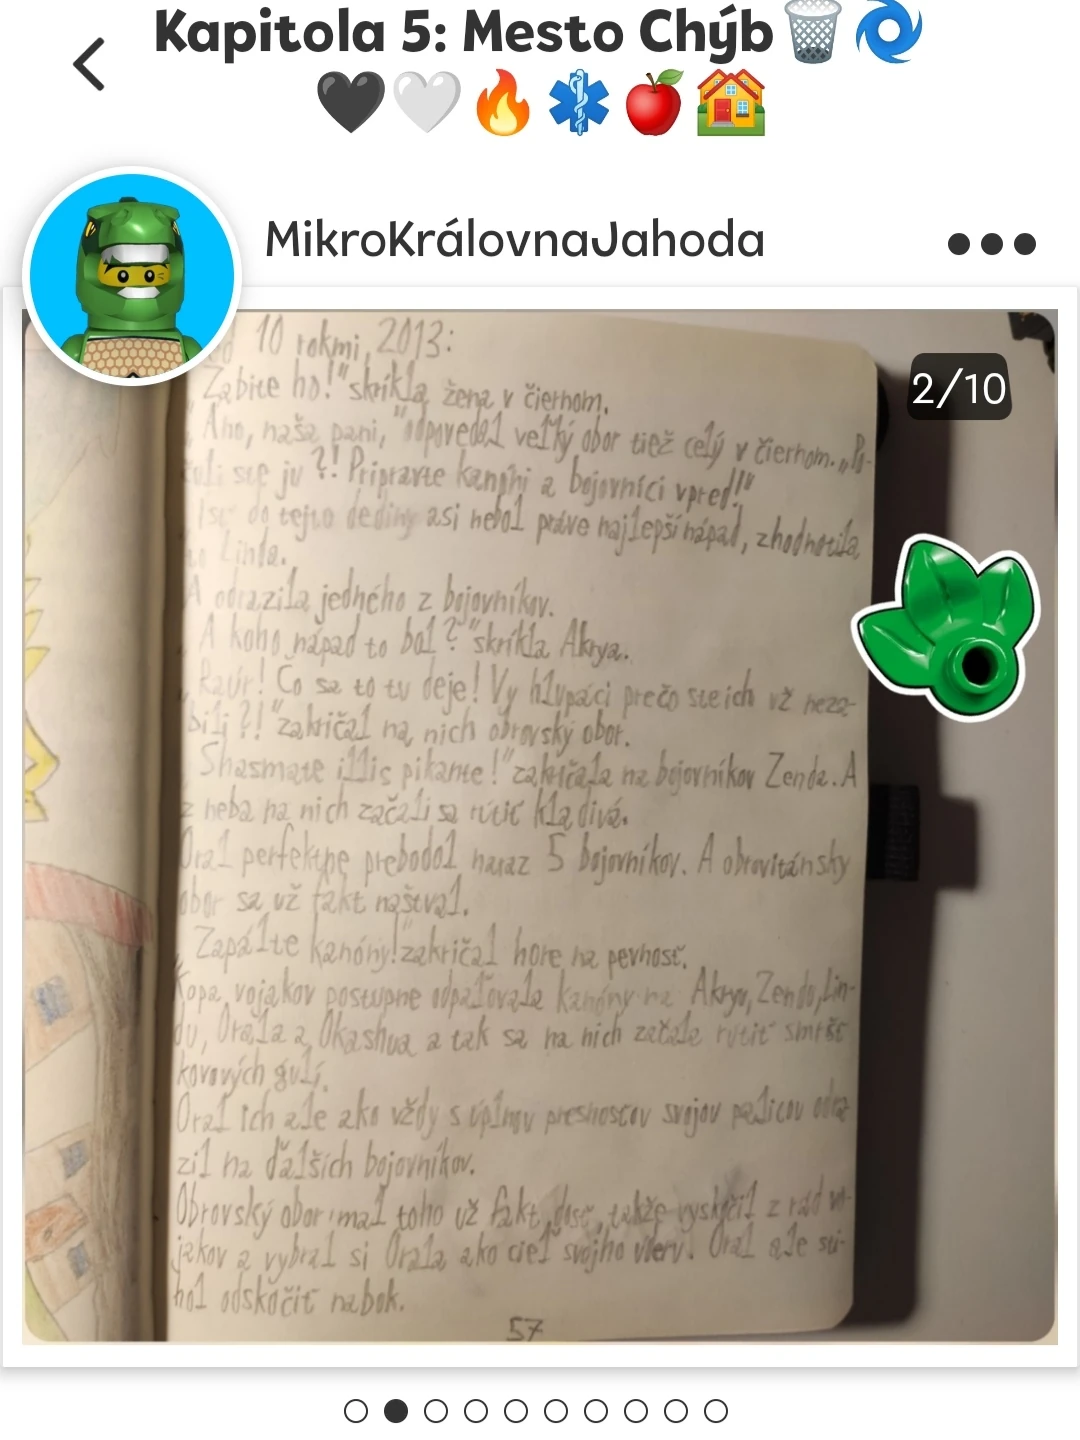 Kapitola 5: Mesto Chýb
MikroKrálovnaJahoda
2/10
10 rokmi, 2013:
Zabite ho!" skríkla žena v čiernom.
„Áno, naša pani," odpovedal veľký obor tiež celý v čiernom. „Po-
čuli ste ju?! Pripravte kanóny a bojovníci vpred!"
Ísť do tejto dediny asi nebol práve najlepší nápad, zhodnotila
to Linda.
A odrazila jedného z bojovníkov.
„A koho nápad to bol?" skríkla Akrya.
„Raúr! Čo sa to tu deje! Vy hlupáci prečo ste ich už neza-
bili?!" zakričal na nich obrovský obor.
„Shasmate illis pikante!" zakričala na bojovníkov Zenda. A
z neba na nich začali sa rútiť kladivá.
Oral perfektne prebodol naraz 5 bojovníkov. A obrovitánsky
obor sa už fakt naštval.
„Zapálte kanóny!" zakričal hore na pevnosť.
Kopa vojakov postupne odpaľovala kanóny na Akryu, Zendu, Lin-
du, Orala a Okashua a tak sa na nich začala rútiť smršť
kovových gulí.
Oral ich ale ako vždy s úplnou presnosťou svojou palicou odra
zil na ďalších bojovníkov.
Obrovský obor mal toho už fakt dosť, takže vyskočil z rád vo-
jakov a vybral si Orala ako cieľ svojho úderu. Oral ale sti-
hol odskočiť nabok.
57